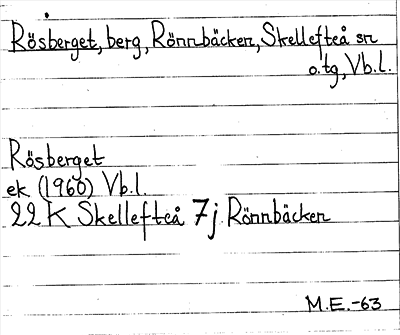 Rösberget, berg, Rönnbäcken, Skellefteå sn
o. tg, Vb.l.
Rösberget
ek (1960) Vb.l.
22 K Skellefteå 7j Rönnbäcken
M.E.-63